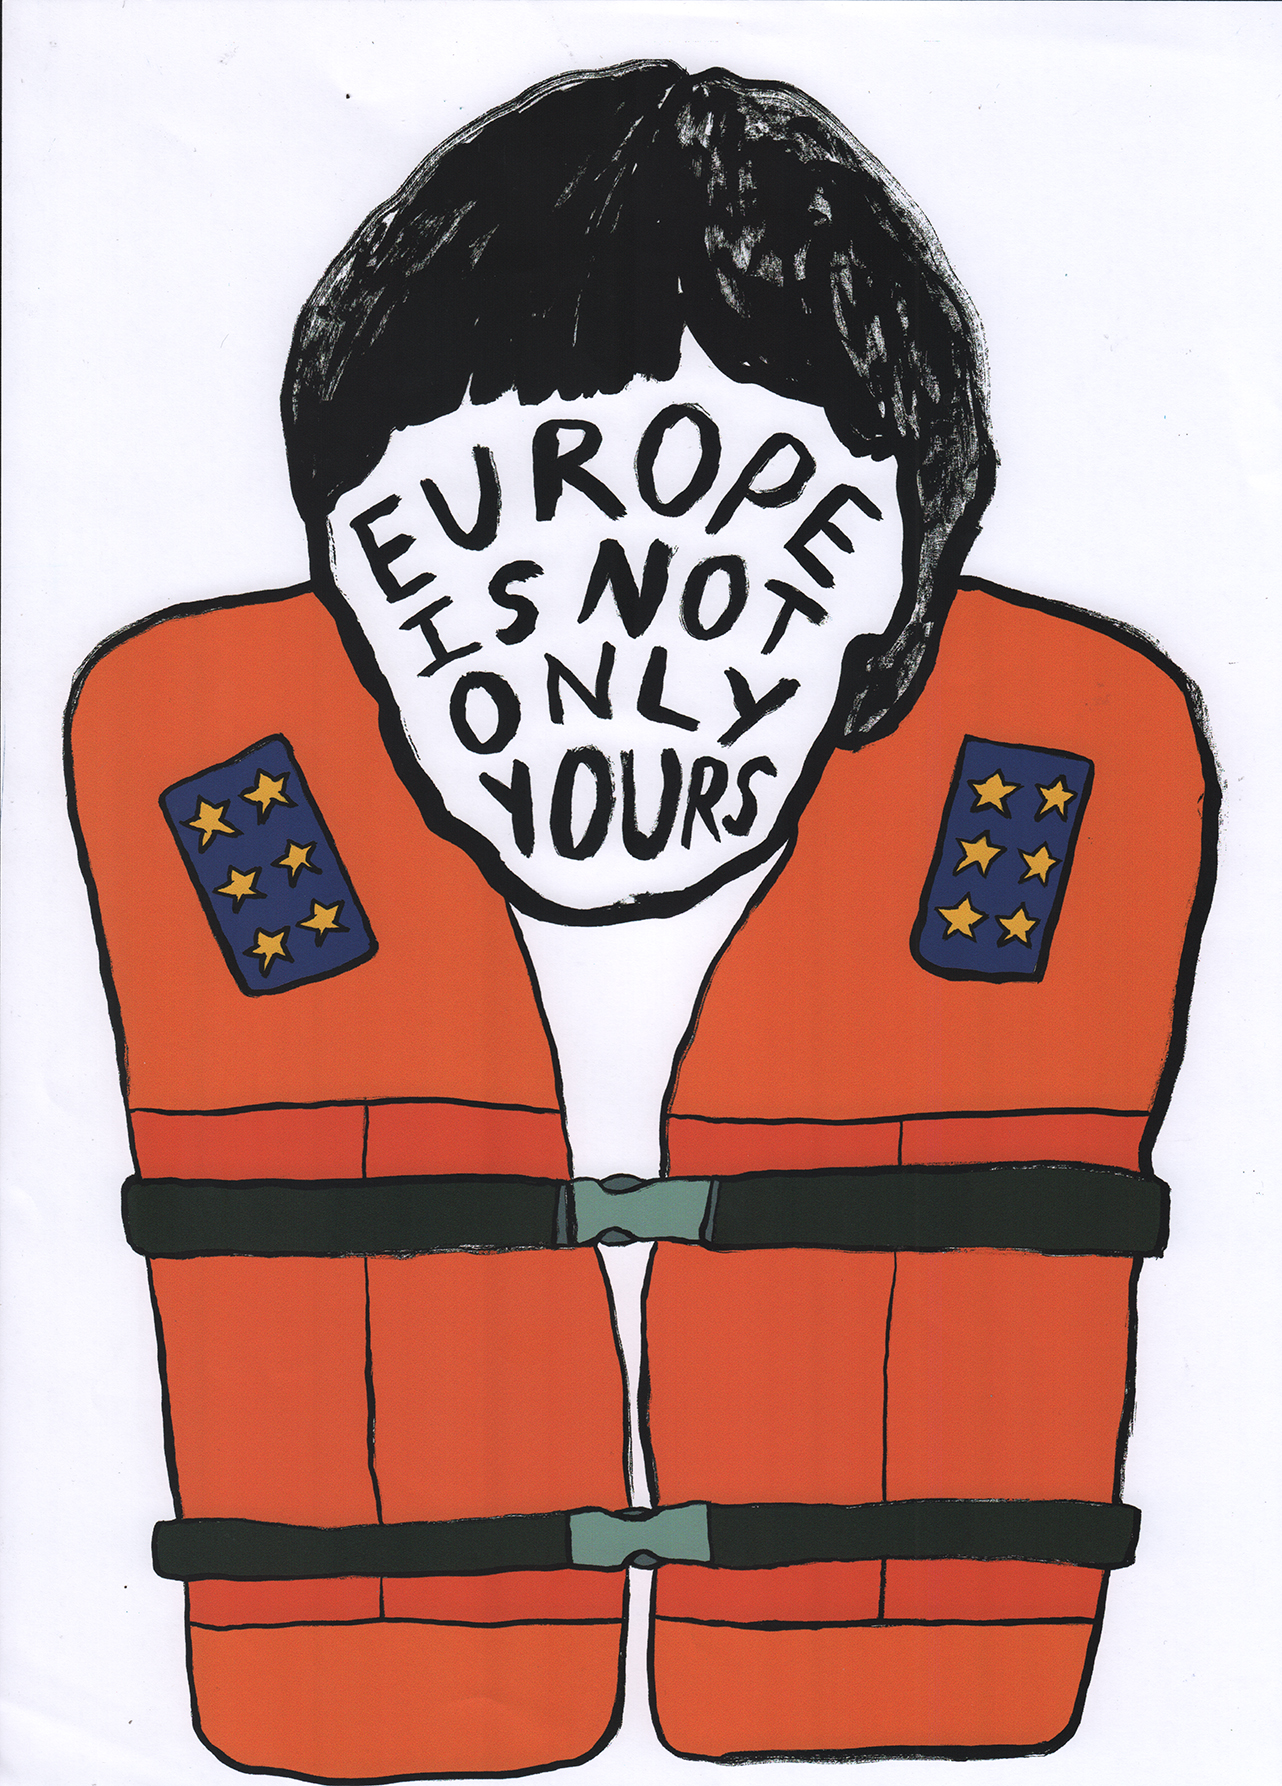 EUROPE
IS NOT
ONLY
YOURS